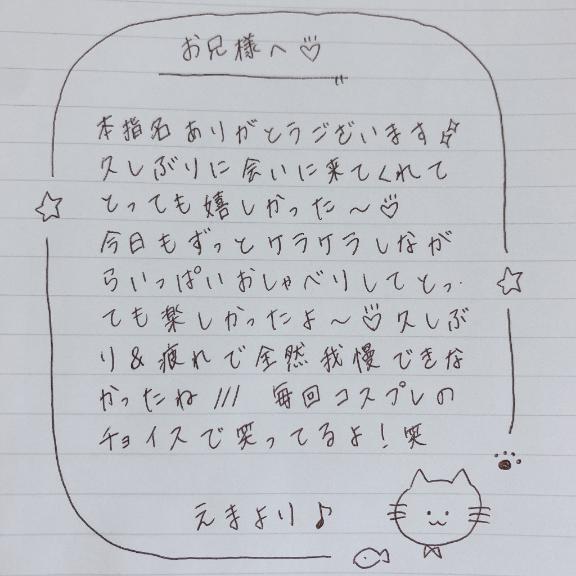 お兄様へ♡
本指名ありがとうございます
久しぶりに会いに来てくれて
とっても嬉しかった～♡
今日もずっとケラケラしなが
らいっぱいおしゃべりしてとっ
ても楽しかったよ～♡久しぶ
り&疲れで全然我慢できな
かったね/// 毎回コスプレの
チョイスで笑ってるよ!笑
えまより♪